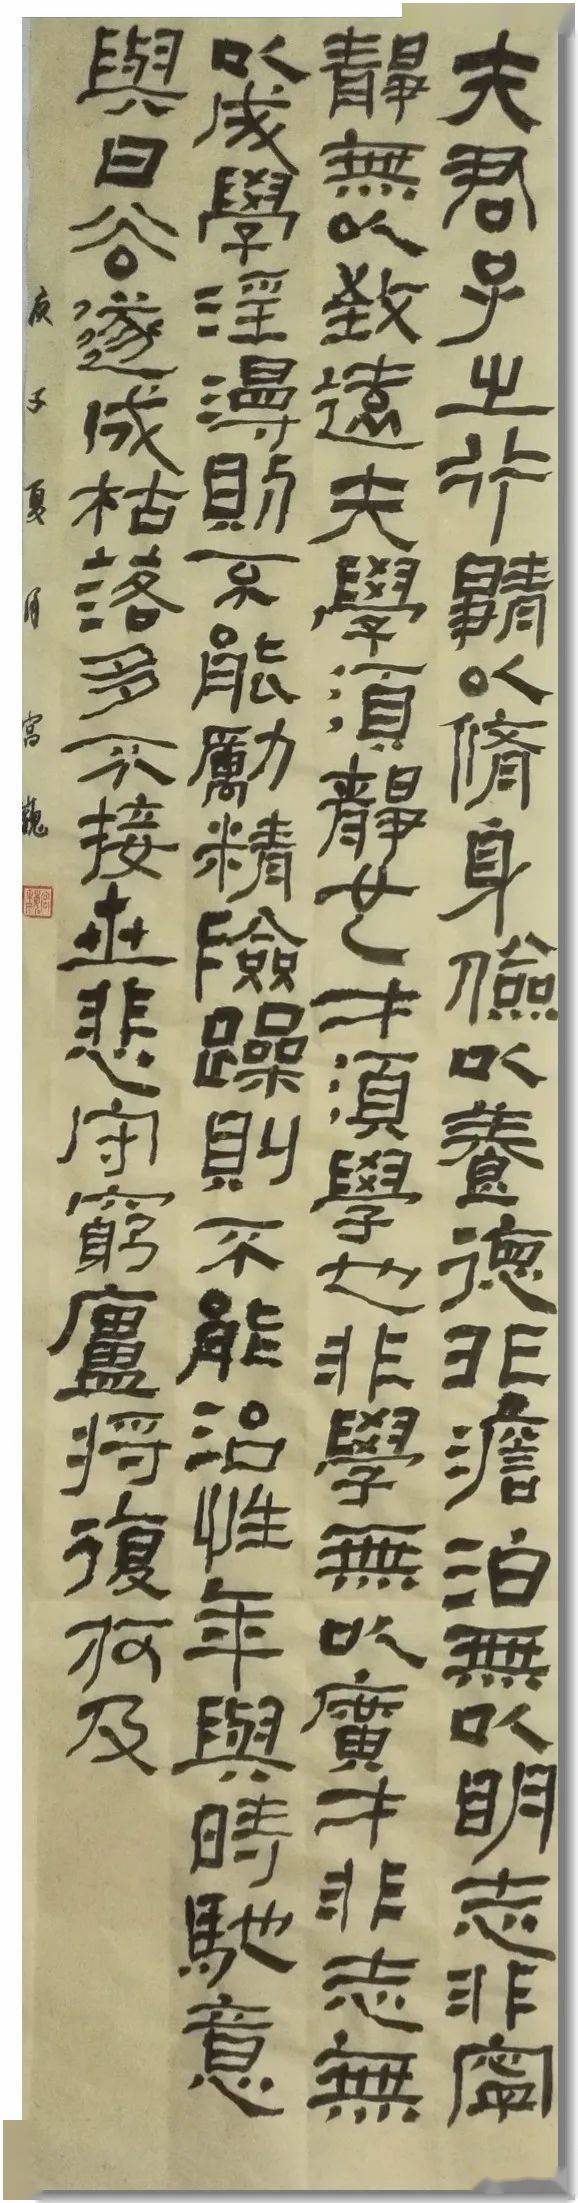 夫君子之行靜以脩身儉以養德非澹泊無以明志非寧
靜無以致遠夫學須靜也才須學也非學無以廣才非志無
以成學淫漫則不能勵精險躁則不能治性年與時馳意
與日去遂成枯落多不接世悲守窮廬將復何及
庚子夏月宫巍